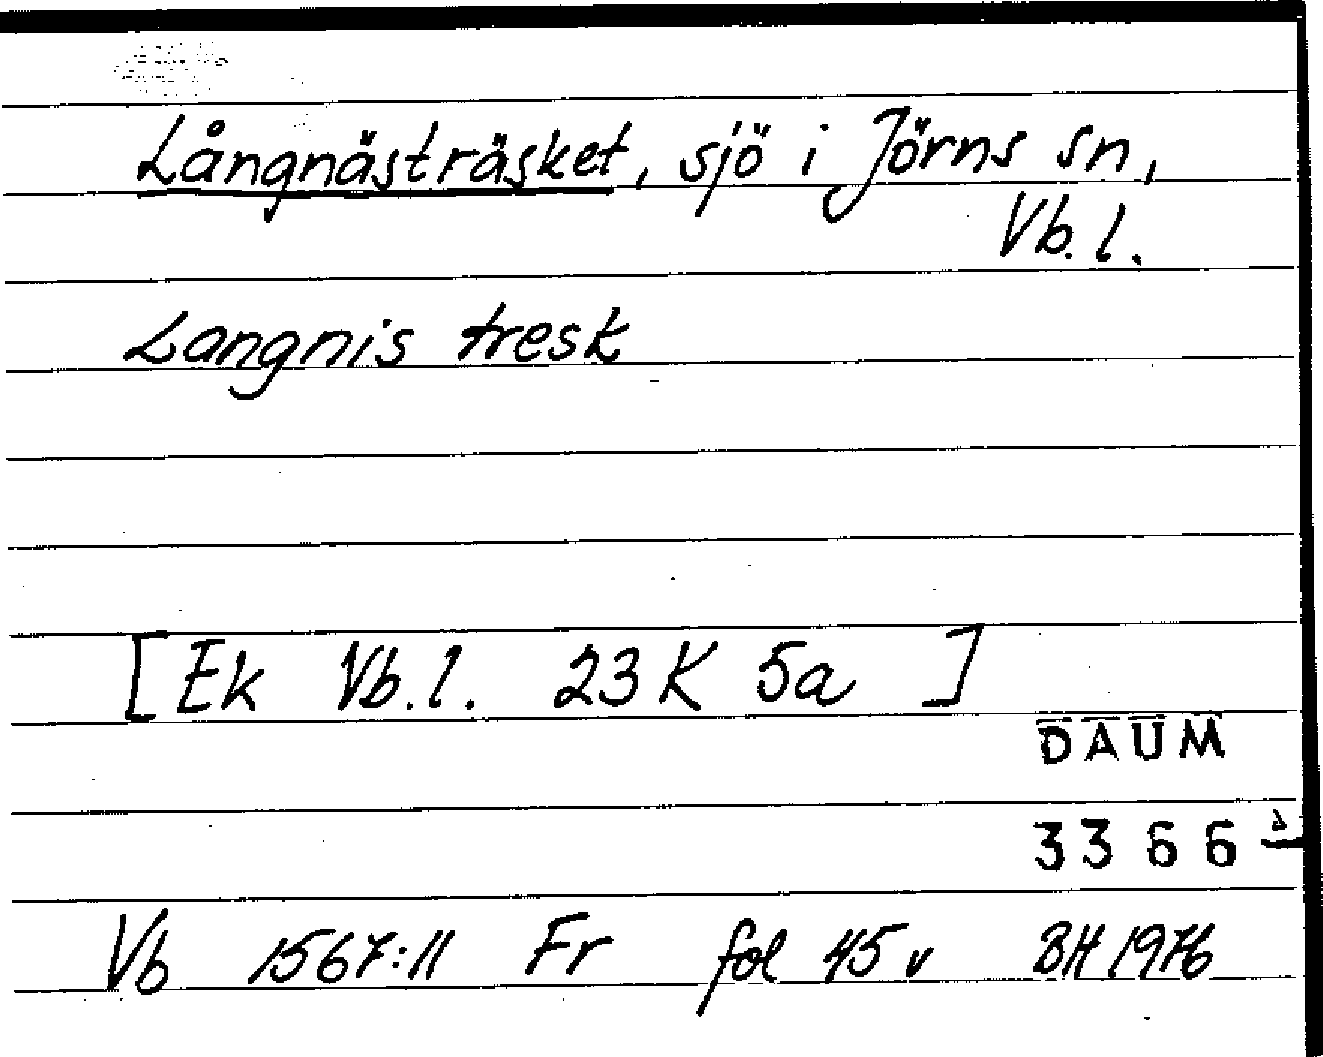 Långnästräsket, sjö i Jörns sn,
Vb. l.
Langnis tresk
[ Ek Vb. l. 23 K 5a ]
DAUM
3366
Vb 1567:11 Fr fol 45 v BH 1976